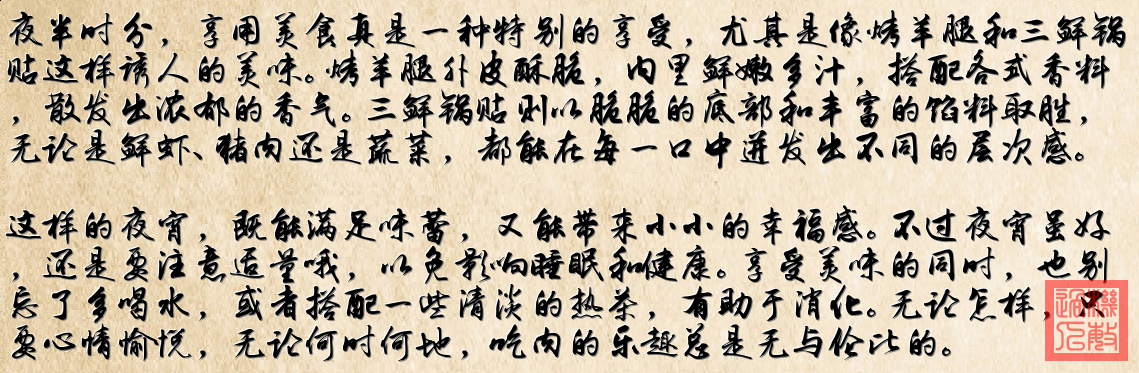 夜半时分，享用美食真是一种特别的享受，尤其是像烤羊腿和三鲜锅
贴这样诱人的美味。烤羊腿外皮酥脆，内里鲜嫩多汁，搭配各式香料
，散发出浓郁的香气。三鲜锅贴则以脆脆的底部和丰富的馅料取胜，
无论是鲜虾、猪肉还是蔬菜，都能在每一口中迸发出不同的层次感。
这样的夜宵，既能满足味蕾，又能带来小小的幸福感。不过夜宵虽好
，还是要注意适量哦，以免影响睡眠和健康。享受美味的同时，也别
忘了多喝水，或者搭配一些清淡的热茶，有助于消化。无论怎样，只
要心情愉悦，无论何时何地，吃肉的乐趣总是无与伦比的。